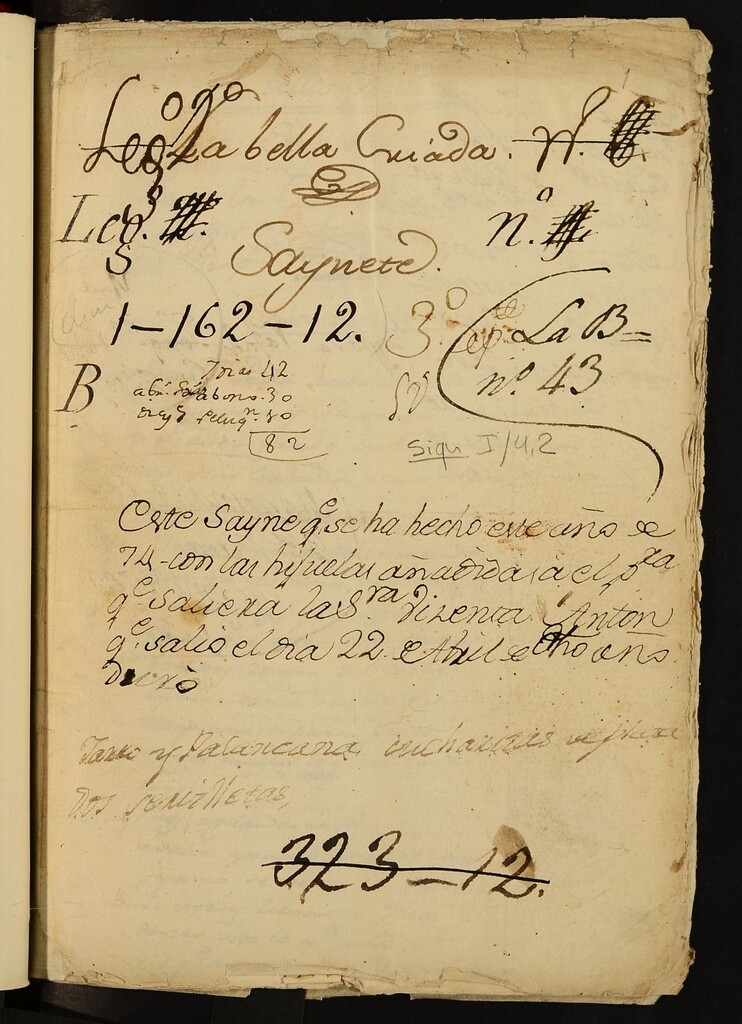 1
Leg.º La bella Criada. N.
Leg. nº
Saynete.
1-162-12. 3º La B=
nº 43
B 7 dias 42
abono. 30
peluqn. 10
82
Sign I/4,2
Este Sayne qe se ha hecho este año de
74 con las hijuelas añadidas a el pra
qe Saliera la Sra Vizenta Anton
qe salio el dia 22 de Abril de dho año
Duró
y Palancana cucharitas
Dos servilletas,
323-12.